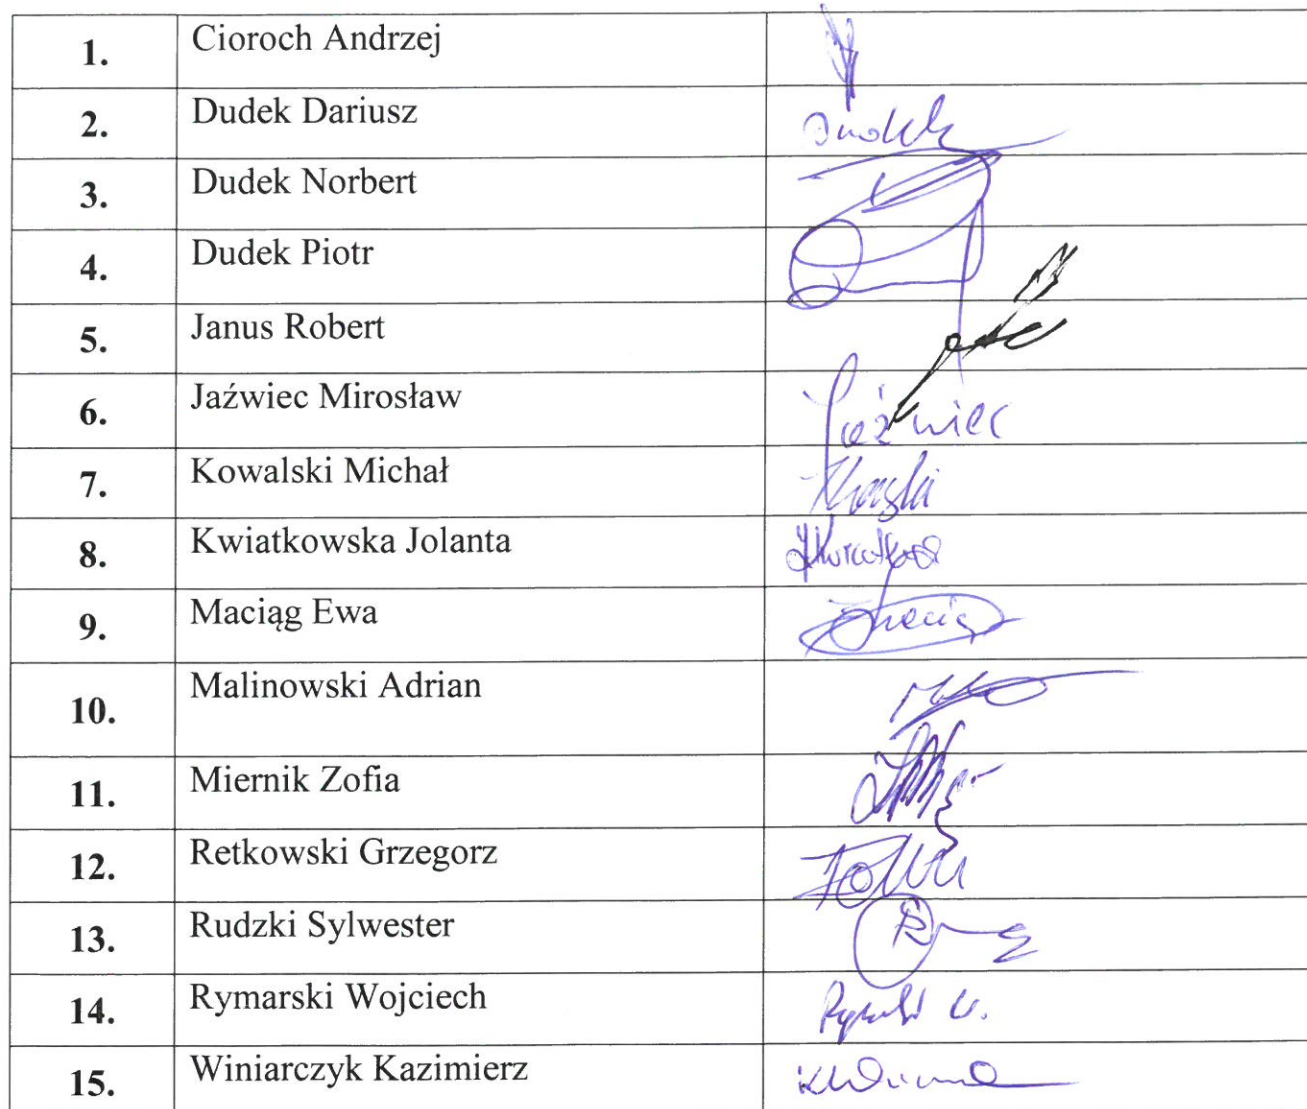 1. Cioroch Andrzej
2. Dudek Dariusz Dudek
3. Dudek Norbert
4. Dudek Piotr
5. Janus Robert
6. Jaźwiec Mirosław Jaźwiec
7. Kowalski Michał
8. Kwiatkowska Jolanta
9. Maciąg Ewa
10. Malinowski Adrian
11. Miernik Zofia
12. Retkowski Grzegorz
13. Rudzki Sylwester
14. Rymarski Wojciech
15. Winiarczyk Kazimierz